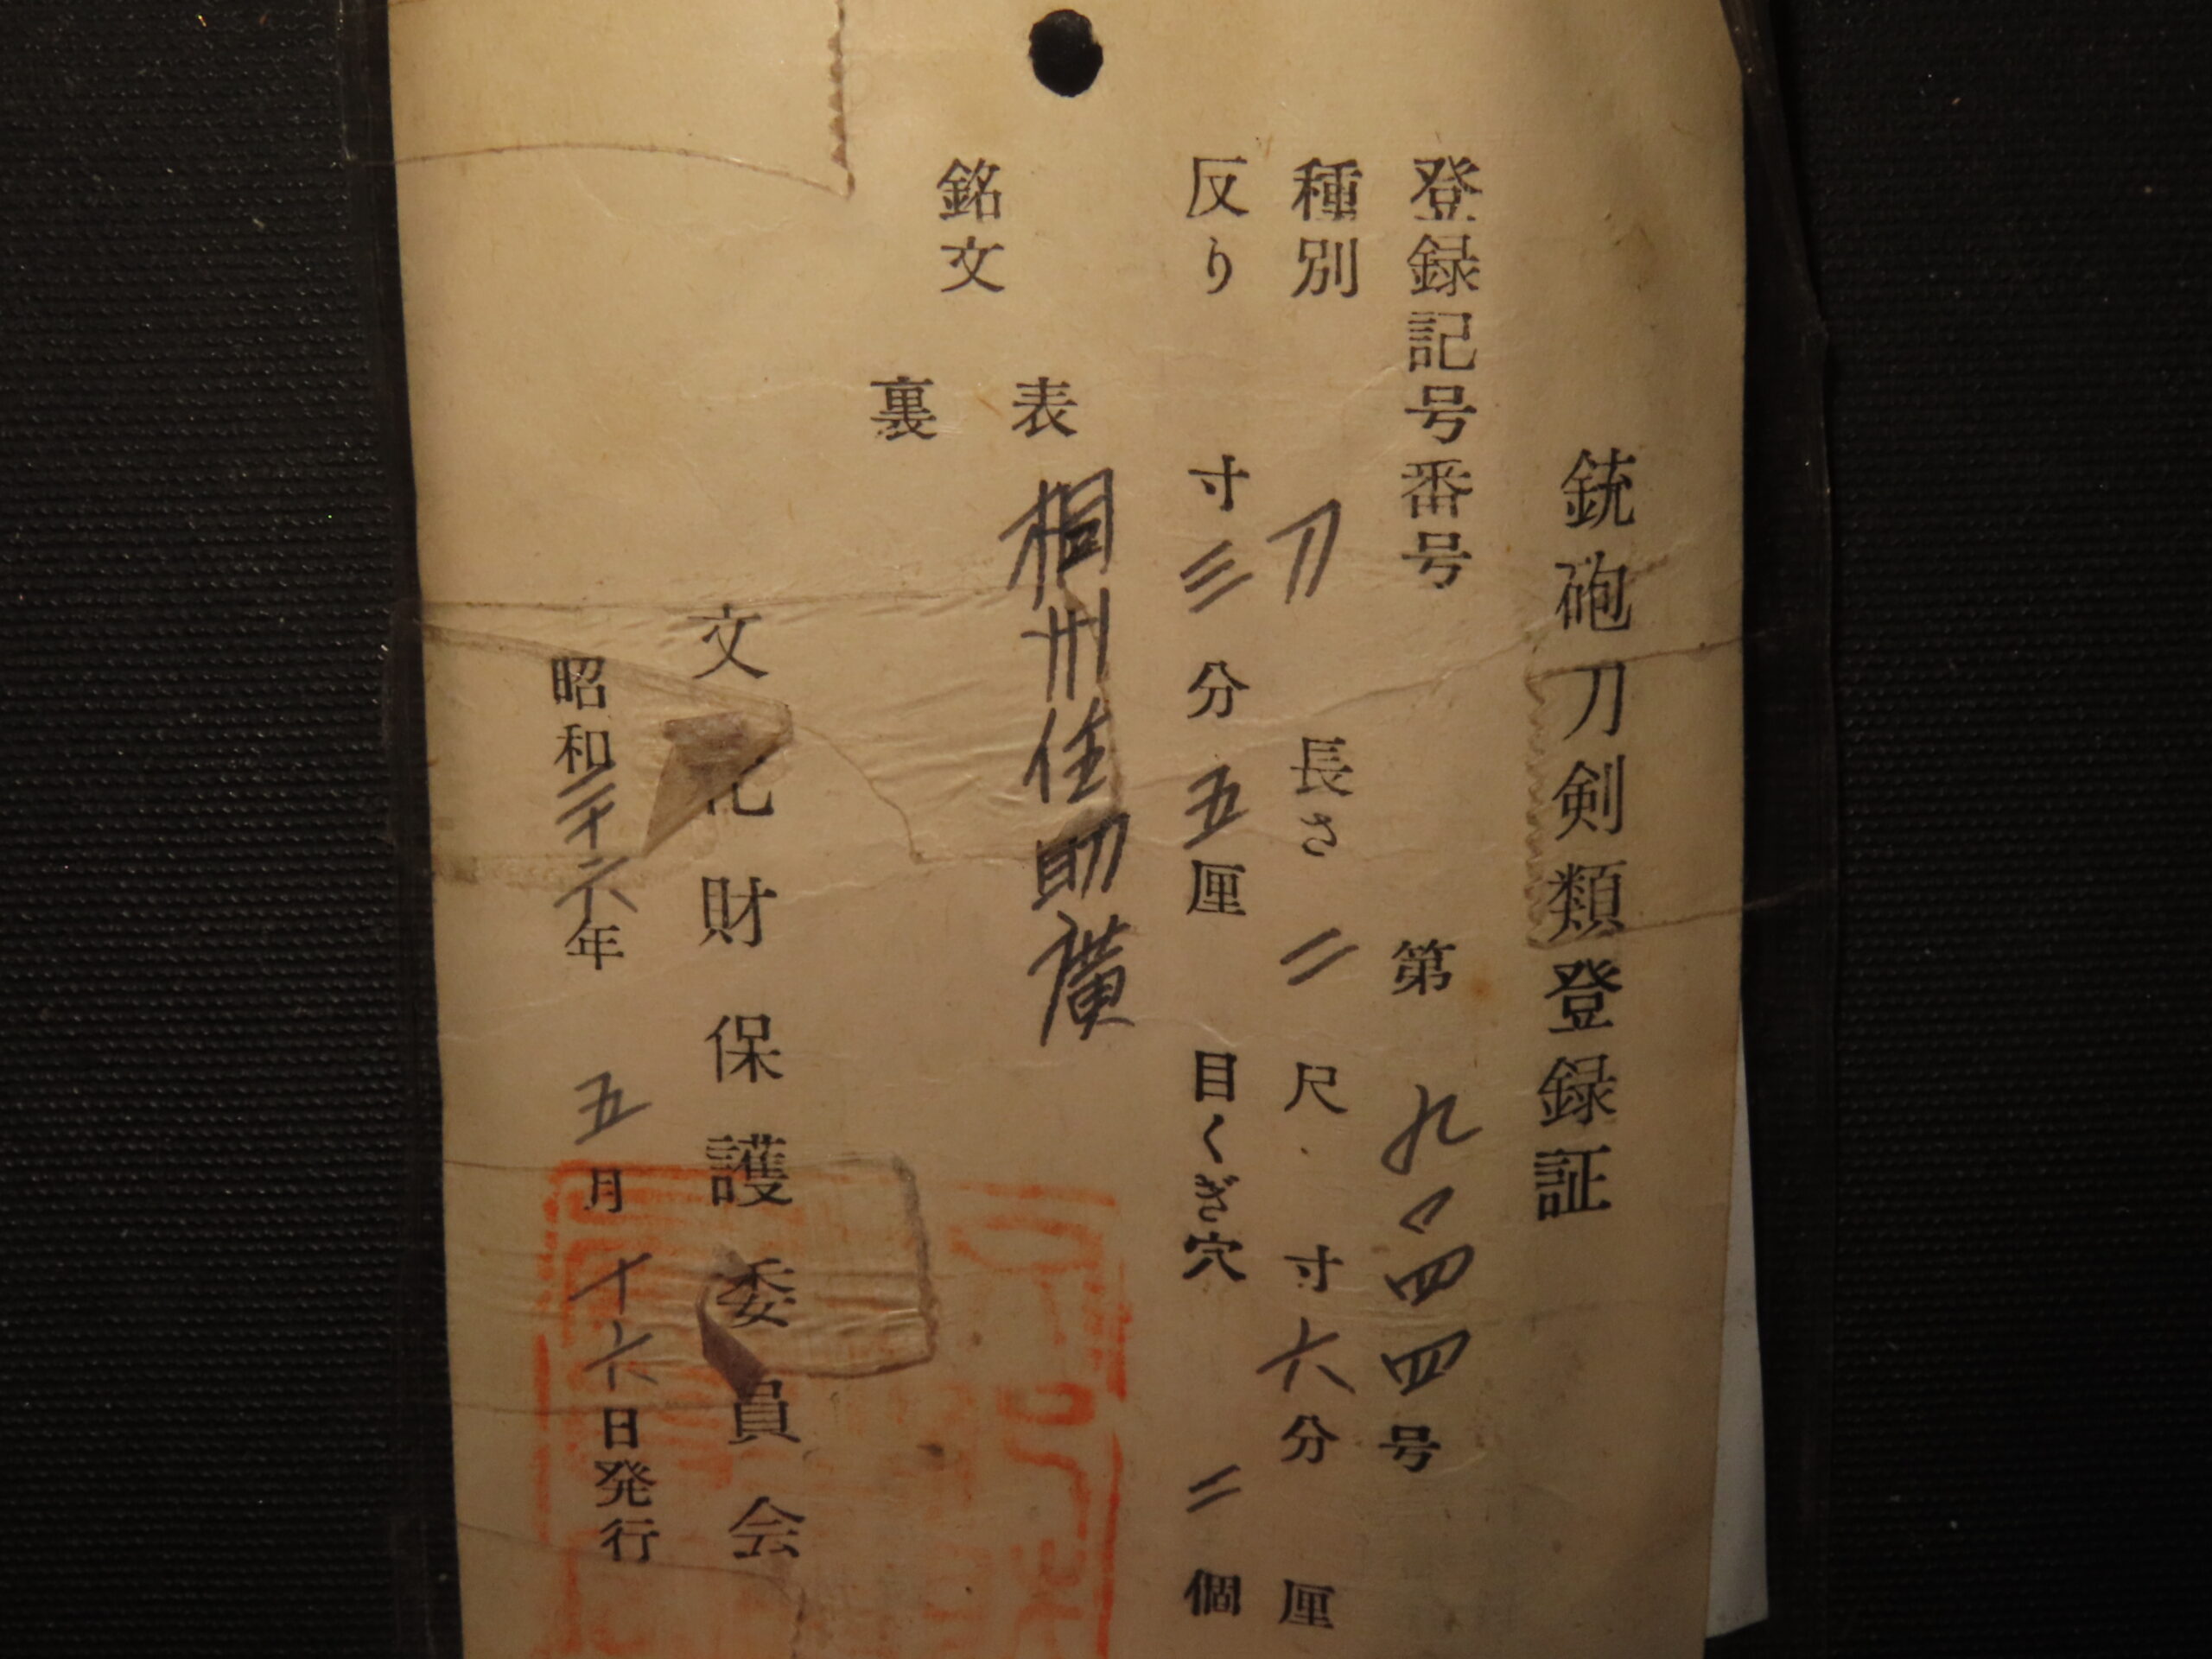 銃砲刀剣類登録証
登録記号番号 第 九 四四号
種別 刀 長さ 二尺 寸六分 厘
反り 寸三分五厘 目くぎ穴 二個
銘文
表 相州住助廣
裏
文化財保護委員会
昭和二十六年五月十六日発行